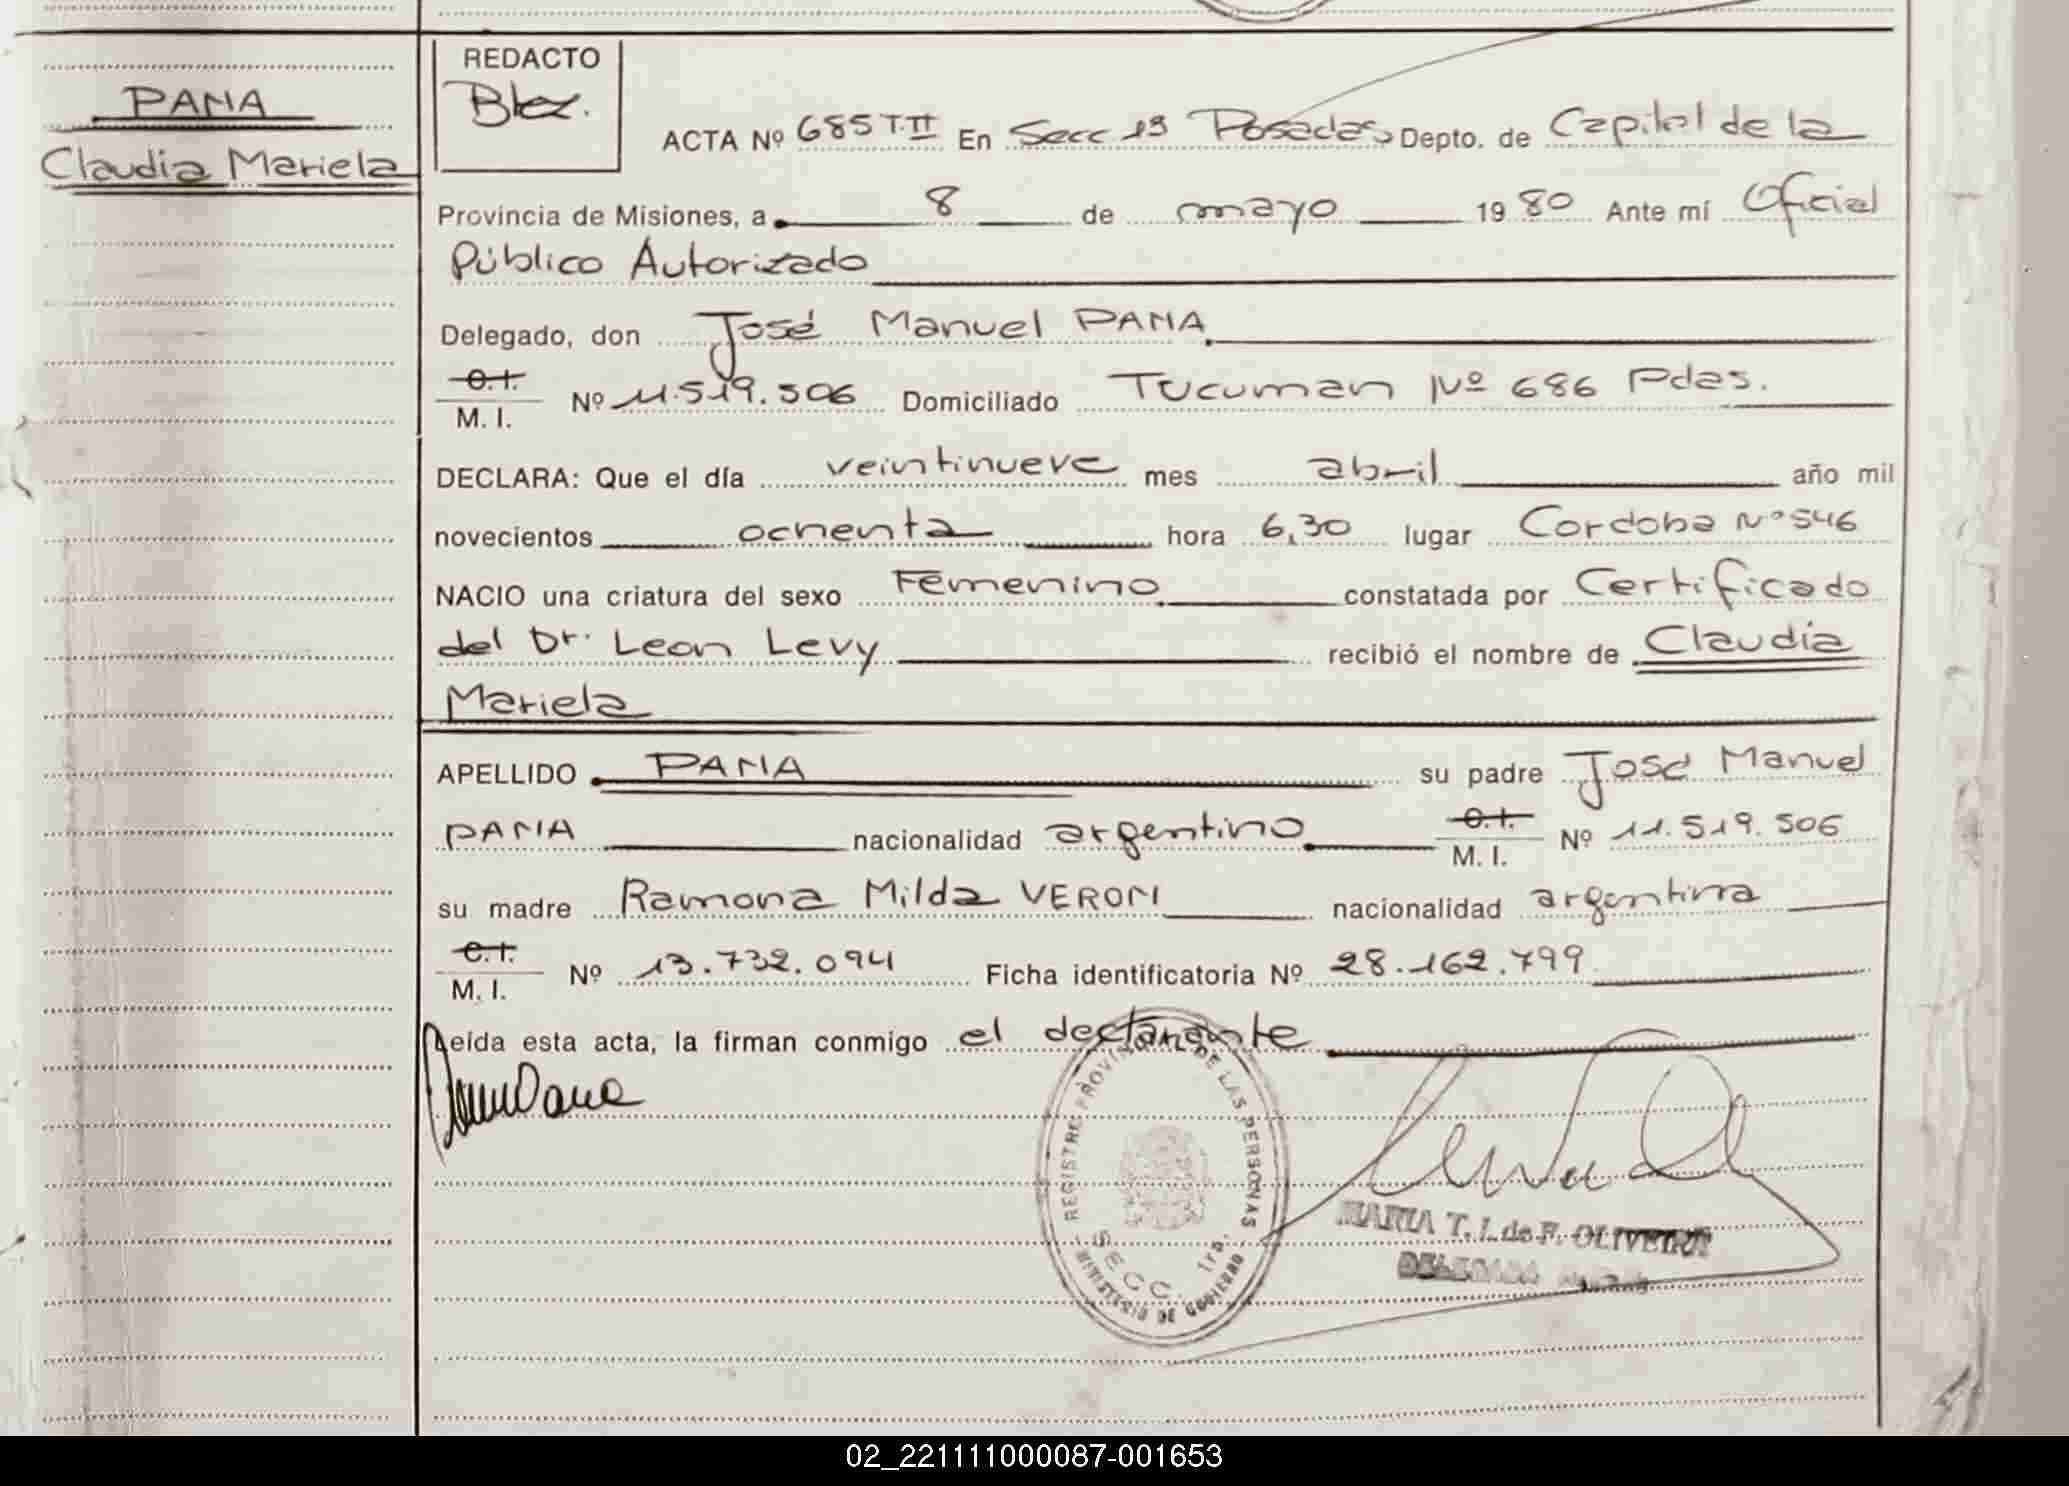 PANA
Claudia Mariela
REDACTO
ACTA Nº 685 T.II En Secc 1ª Posadas Depto. de Capital de la
Provincia de Misiones, a 8 de mayo 19 80 Ante mí Oficial
Público Autorizado
Delegado, don José Manuel PANA
C.I.
M. I. Nº 11.519.506 Domiciliado Tucuman Nº 686 Pdas.
DECLARA: Que el día veintinueve mes abril año mil
novecientos ochenta hora 6,30 lugar Cordoba Nº 546
NACIO una criatura del sexo Femenino constatada por Certificado
del Dr. Leon Levy recibió el nombre de Claudia
Mariela
APELLIDO PANA su padre José Manuel
PANA nacionalidad argentino C.I. M. I. Nº 11.519.506
su madre Ramona Nilda VERON nacionalidad argentina
C.I.
M. I. Nº 13.732.094 Ficha identificatoria Nº 28.162.799
Leída esta acta, la firman conmigo el declarante
REGISTRO PROVINCIAL DE LAS PERSONAS
SECC. 1ra.
MINISTERIO DE GOBIERNO
MARIA T. I. de F. OLIVEIRA
DELEGADA
02_221111000087-001653